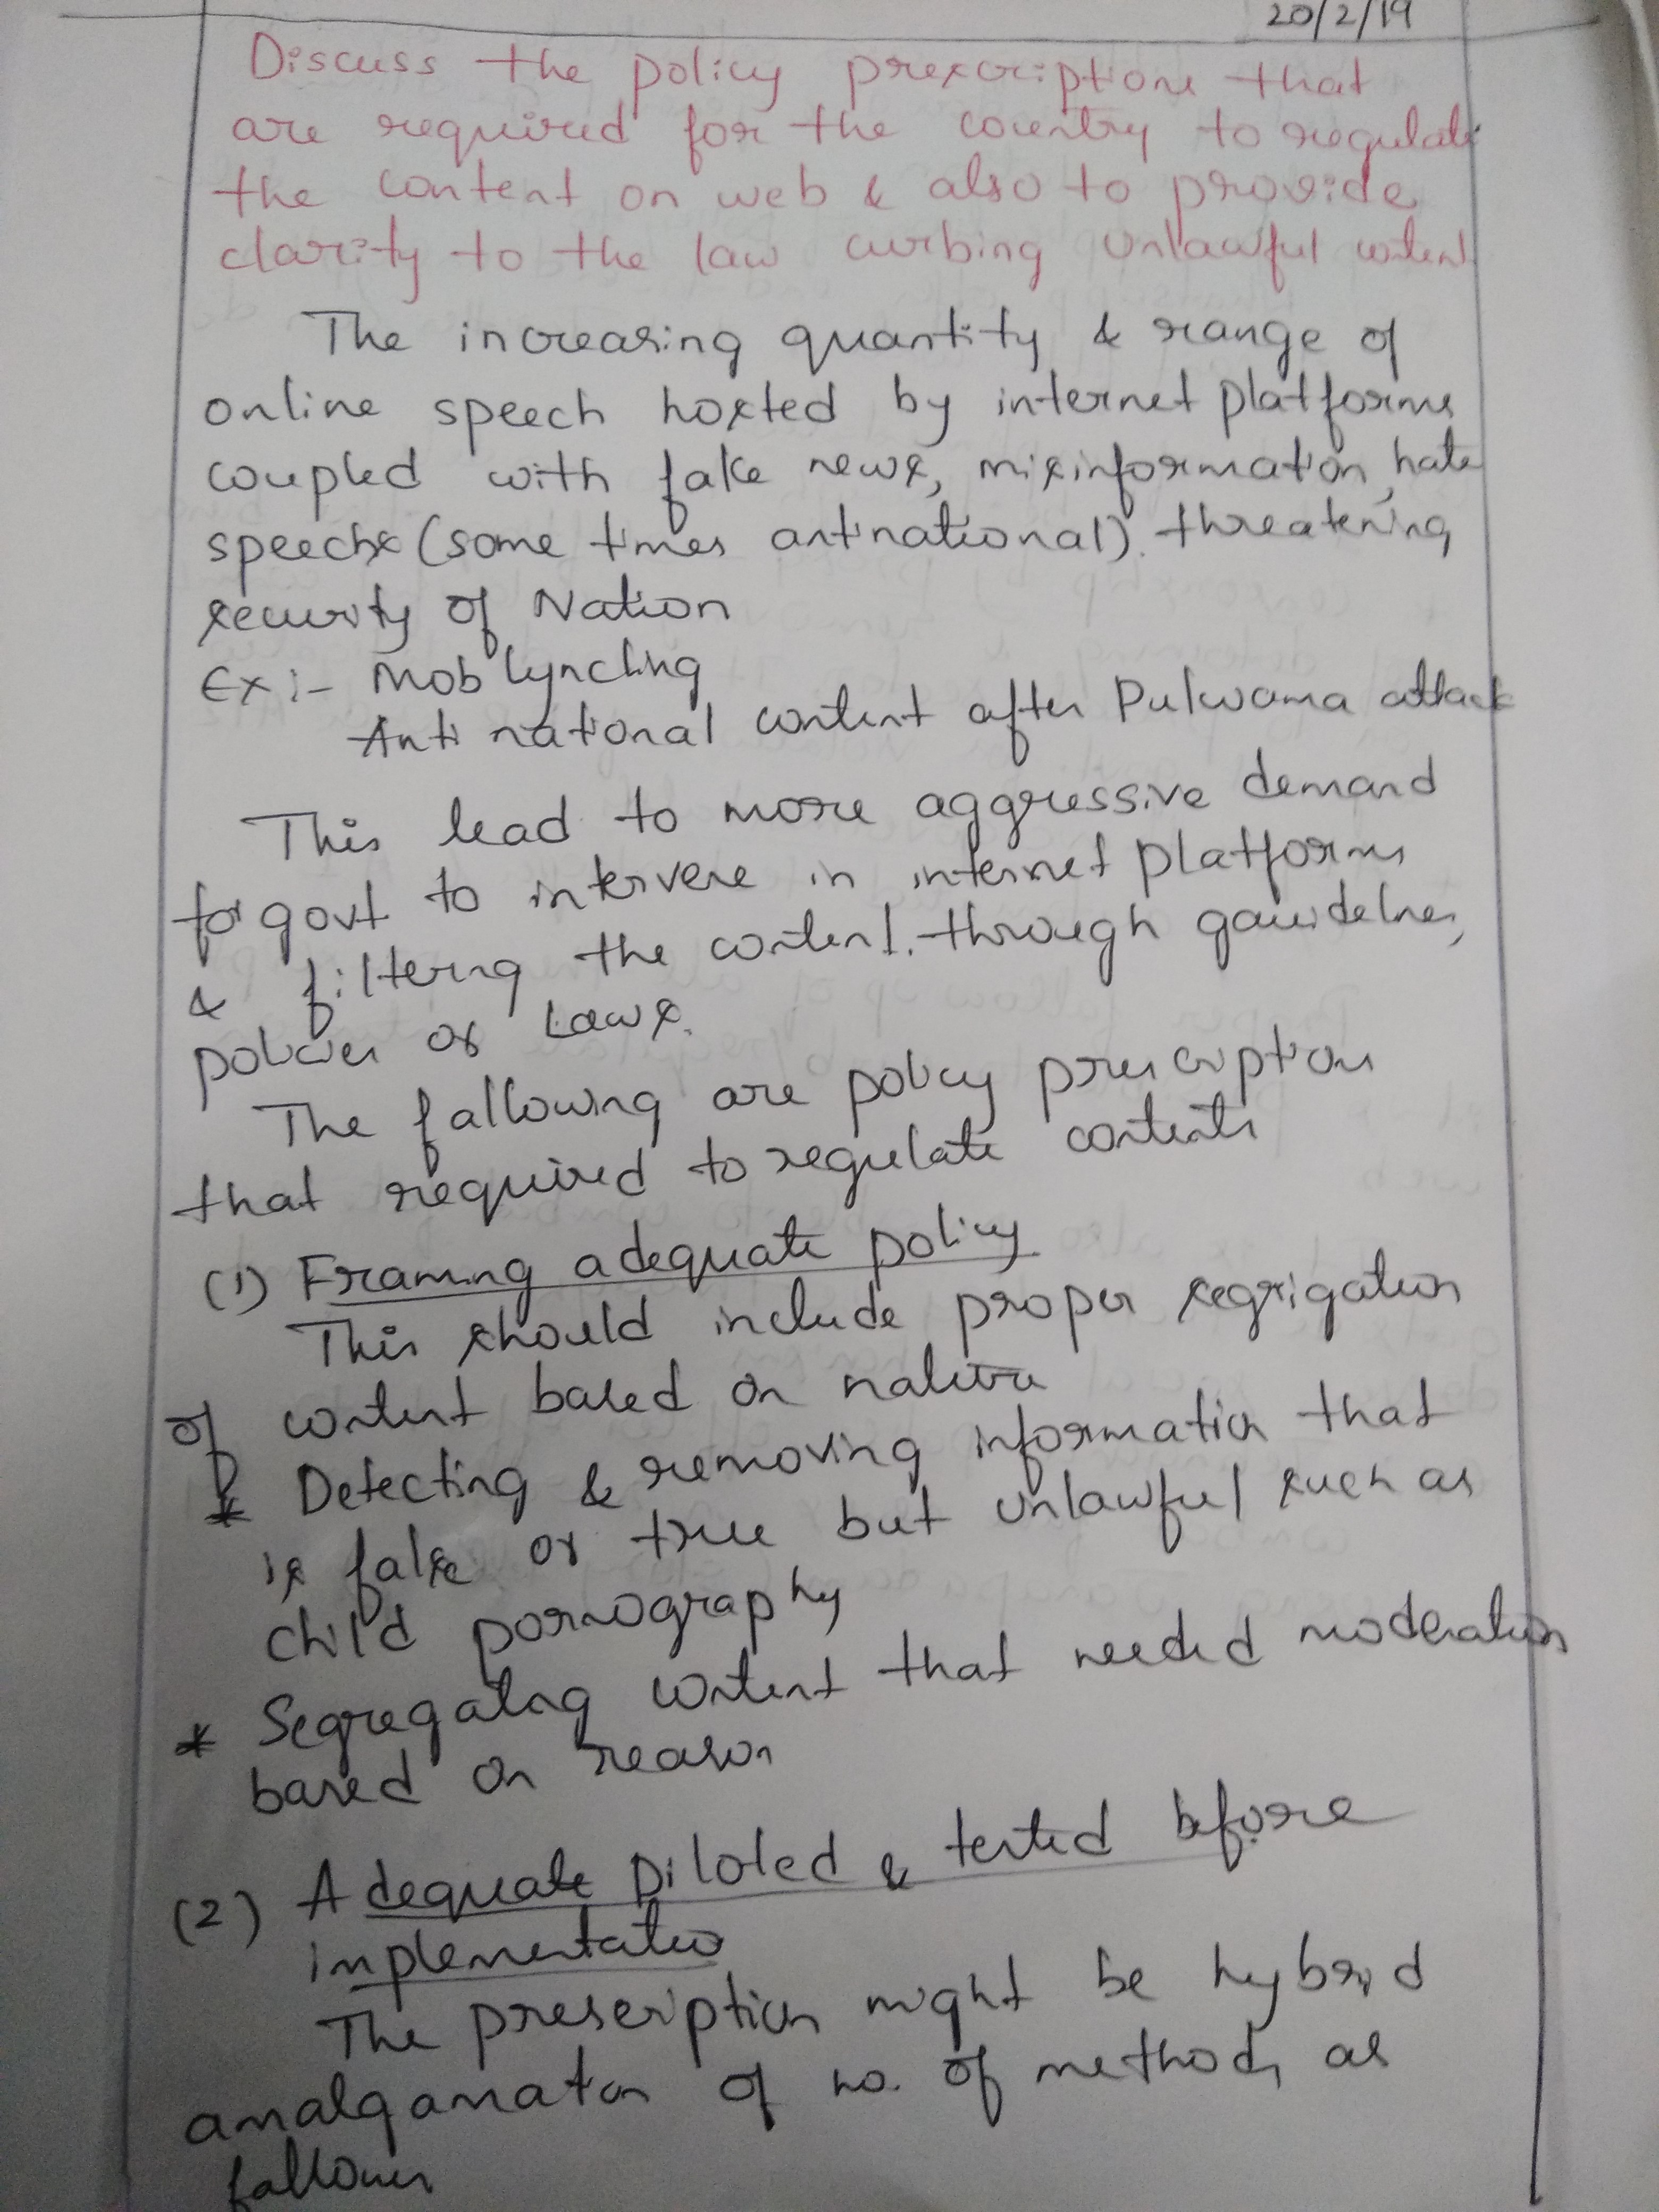 20/2/19
Discuss the policy prescriptions that
are required for the country to regulate
the content on web & also to provide
clarity to the law curbing unlawful content
The increasing quantity & range of
online speech hosted by internet platforms
coupled with fake news, misinformation, hate
speechs (some times antinational). threatening
security of Nation
Ex:- Mob lynching
Anti national content after Pulwama attack
This lead to more aggressive demand
for govt to intervene in internet platforms
& filtering the content. through gauidelnes,
policies or Laws.
The fallowing are policy prescriptions
that required to regulate contents
(1) Framing adequate policy
This should include proper segrigation
of content based on nature
* Detecting & removing information that
is false or true but unlawful such as
child pornography
* Segregating content that needed moderation
based on reason
(2) Adequate piloted & tested before
implementation
The prescription might be hybrid
amalgamation of no. of methods as
fallows